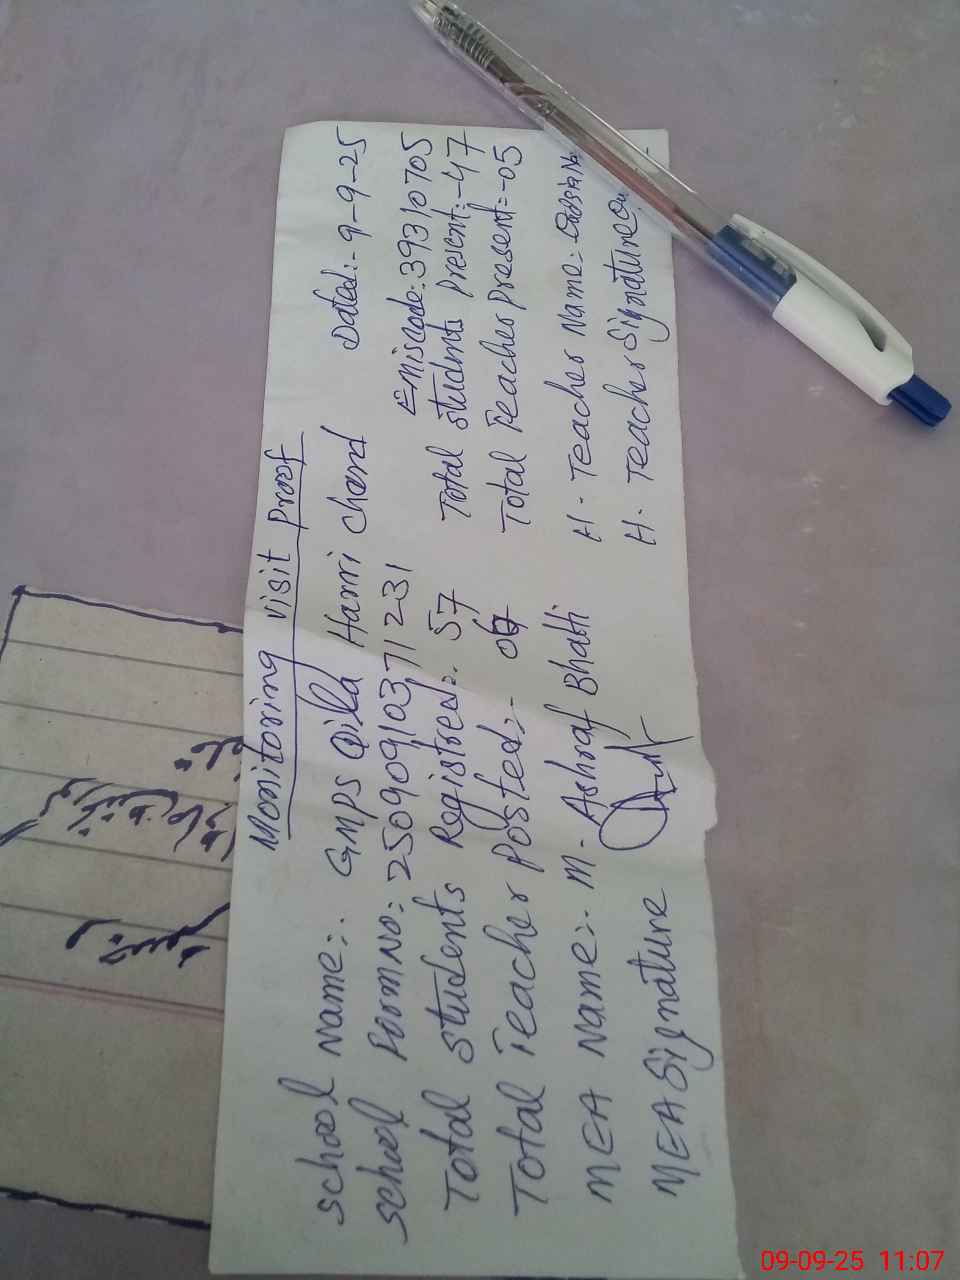 Monitoring visit Proof
School Name:- GMPS Qila Harri Chand Dated:- 9-9-25
School Form No:- 250909103771231 Emiscode:- 39310705
Total Students Registred:- 57 Total Students present:- 47
Total Teacher Posted:- 06 Total Teacher present:- 05
MEA Name:- M. Ashraf Bhatti H. Teacher Name:-
MEA Signature H. Teacher Signature
09-09-25 11:07